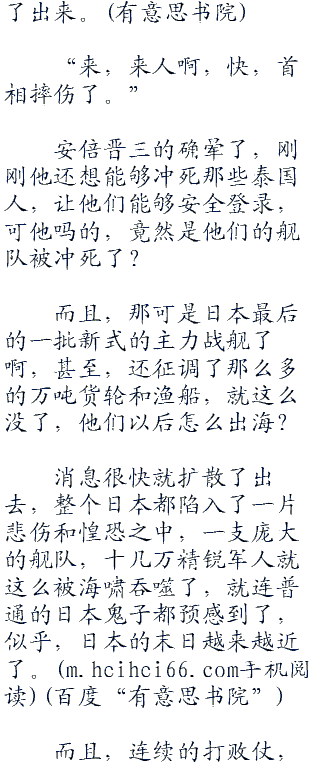 了出来。(有意思书院)
“来，来人啊，快，首
相摔伤了。”
安倍晋三的确晕了，刚
刚他还想能够冲死那些泰国
人，让他们能够安全登录，
可他吗的，竟然是他们的舰
队被冲死了？
而且，那可是日本最后
的一批新式的主力战舰了
啊，甚至，还征调了那么多
的万吨货轮和渔船，就这么
没了，他们以后怎么出海？
消息很快就扩散了出
去，整个日本都陷入了一片
悲伤和惶恐之中，一支庞大
的舰队，十几万精锐军人就
这么被海啸吞噬了，就连普
通的日本鬼子都预感到了，
似乎，日本的末日越来越近
了。(m.hcihci66.com手机阅
读)(百度“有意思书院”)
而且，连续的打败仗，